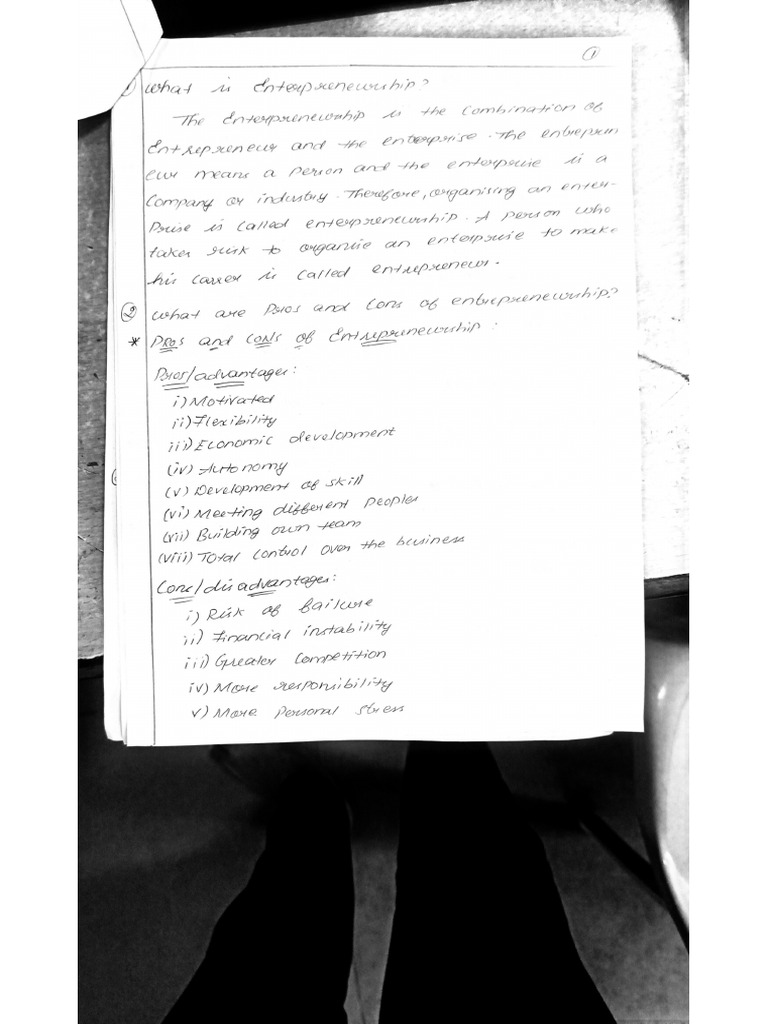 ①
① What is Enterpreneurship?
The Enterpreneurship is the combination of
Entrepreneur and the enterprise. The entrepren
eur means a person and the enterprise is a
Company or industry. Therefore, organising an enter-
Prise is called enterpreneurship. A person who
takes risk to organise an enterprise to make
his career is called entrepreneur.
② What are Pros and Cons of entrepreneurship?
* Pros and Cons of Entrepreneurship:
Pros/advantages:
i) Motivated
ii) Flexibility
iii) Economic development
(iv) Autonomy
(v) Development of skill
(vi) Meeting different peoples
(vii) Building own team
(viii) Total control over the business
Cons/disadvantages:
i) Risk of failure
ii) Financial instability
iii) Greater Competition
iv) More responsibility
v) More Personal stress